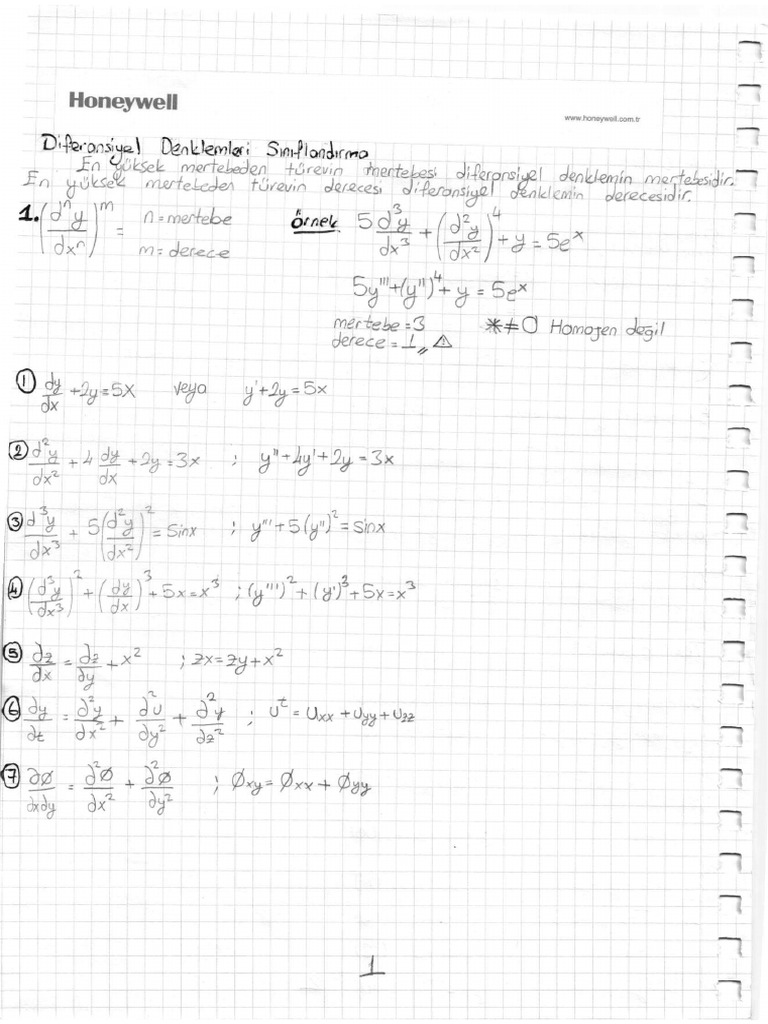 Honeywell
www.honeywell.com.tr
Diferansiyel Denklemleri Sınıflandırma
En yüksek mertebeden türevin mertebesi diferansiyel denklemin mertebesidir.
En yüksek mertebeden türevin derecesi diferansiyel denklemin derecesidir.
1. (dⁿy/dxⁿ)ᵐ = n=mertebe m=derece
örnek. 5 d³y/dx³ + (d²y/dx²)⁴ + y = 5eˣ
5y''' + (y'')⁴ + y = 5eˣ
mertebe = 3 * ≠ 0 Homojen değil
derece = 1,, ⚠
① dy/dx + 2y = 5x veya y' + 2y = 5x
② d²y/dx² + 4 dy/dx + 2y = 3x ; y'' + 4y' + 2y = 3x
③ d³y/dx³ + 5(d²y/dx²)² = Sinx ; y''' + 5(y'')² = sinx
④ (d³y/dx³)² + (dy/dx)³ + 5x = x³ ; (y''')² + (y')³ + 5x = x³
⑤ ∂z/∂x = ∂z/∂y + x² ; zx = zy + x²
⑥ ∂y/∂t = ∂²y/∂x² + ∂²u/∂y² + ∂²y/∂z² ; uᵗ = Uxx + Uyy + Uzz
⑦ ∂Ø/∂x∂y = ∂²Ø/∂x² + ∂²Ø/∂y² ; Øxy = Øxx + Øyy
1